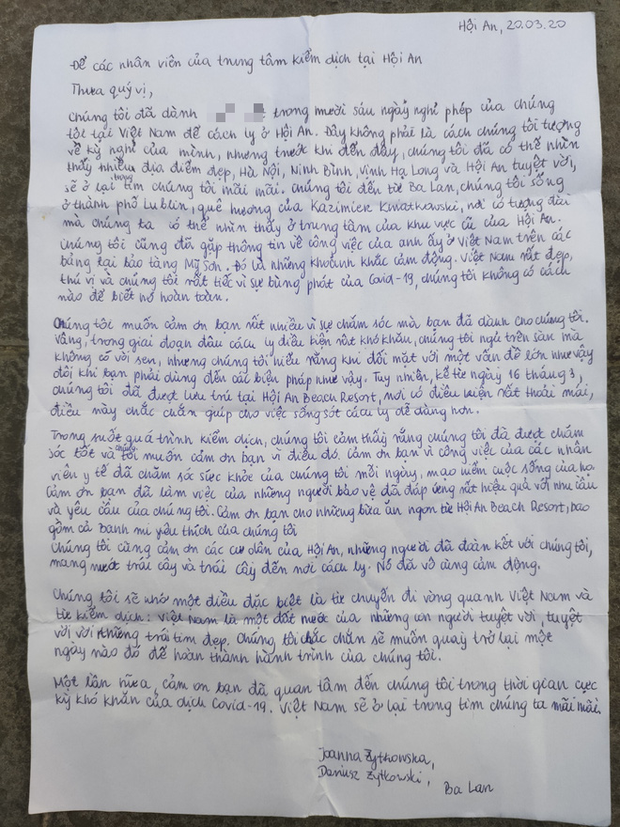 Hội An, 20.03.20
Để các nhân viên của trung tâm kiểm dịch tại Hội An
Thưa quý vị,
Chúng tôi đã dành trong mười sáu ngày nghỉ phép của chúng
tôi tại Việt Nam để cách ly ở Hội An. Đây không phải là cách chúng tôi tưởng
về kỳ nghỉ của mình, nhưng trước khi đến đây, chúng tôi đã có thể nhìn
thấy nhiều địa điểm đẹp, Hà Nội, Ninh Bình, Vịnh Hạ Long và Hội An tuyệt vời,
sẽ ở lại trong tim chúng tôi mãi mãi. Chúng tôi đến từ Ba Lan, chúng tôi sống
ở thành phố Lublin, quê hương của Kazimierz Kwiatkowski, nơi có tượng đài
mà chúng ta có thể nhìn thấy ở trung tâm của khu vực cũ của Hội An.
Chúng tôi cũng đã gặp thông tin về công việc của anh ấy ở Việt Nam trên các
bảng tại bảo tàng Mỹ Sơn. Đó là những khoảnh khắc cảm động. Việt Nam rất đẹp,
thú vị và chúng tôi rất tiếc vì sự bùng phát của Covid-19, chúng tôi không có cách
nào để biết nó hoàn toàn.
Chúng tôi muốn cảm ơn bạn rất nhiều vì sự chăm sóc mà bạn đã dành cho chúng tôi.
Vâng, trong giai đoạn đầu cách ly điều kiện rất khó khăn, chúng tôi ngủ trên sàn mà
không có vòi sen, nhưng chúng tôi hiểu rằng khi đối mặt với một vấn đề lớn như vậy
đôi khi bạn phải dùng đến các biện pháp như vậy. Tuy nhiên, kể từ ngày 16 tháng 3,
chúng tôi đã được lưu trú tại Hội An Beach Resort, nơi có điều kiện rất thoải mái,
điều này chắc chắn giúp cho việc sống sót cách ly dễ dàng hơn.
Trong suốt quá trình kiểm dịch, chúng tôi cảm thấy rằng chúng tôi đã được chăm
sóc tốt và chúng tôi muốn cảm ơn bạn vì điều đó. Cảm ơn bạn vì công việc của các nhân
viên y tế đã chăm sóc sức khỏe của chúng tôi mỗi ngày, mạo hiểm cuộc sống của họ.
Cảm ơn bạn đã làm việc của những người bảo vệ đã đáp ứng rất hiệu quả với nhu cầu
và yêu cầu của chúng tôi. Cảm ơn bạn cho những bữa ăn ngon từ Hội An Beach Resort, bao
gồm cả banh mi yêu thích của chúng tôi
Chúng tôi cũng cảm ơn các cư dân của Hội An, những người đã đoàn kết với chúng tôi,
mang nước trái cây và trái cây đến nơi cách ly. Nó đã vô cùng cảm động.
Chúng tôi sẽ nhớ một điều đặc biệt là từ chuyến đi vòng quanh Việt Nam và
từ kiểm dịch: Việt Nam là một đất nước của những con người tuyệt vời, tuyệt
vời với những trái tim đẹp. Chúng tôi chắc chắn sẽ muốn quay trở lại một
ngày nào đó để hoàn thành hành trình của chúng tôi.
Một lần nữa, cảm ơn bạn đã quan tâm đến chúng tôi trong thời gian cực
kỳ khó khăn của dịch Covid-19. Việt Nam sẽ ở lại trong tim chúng ta mãi mãi.
Joanna Żytkowska,
Dariusz Żytkowski,
Ba Lan